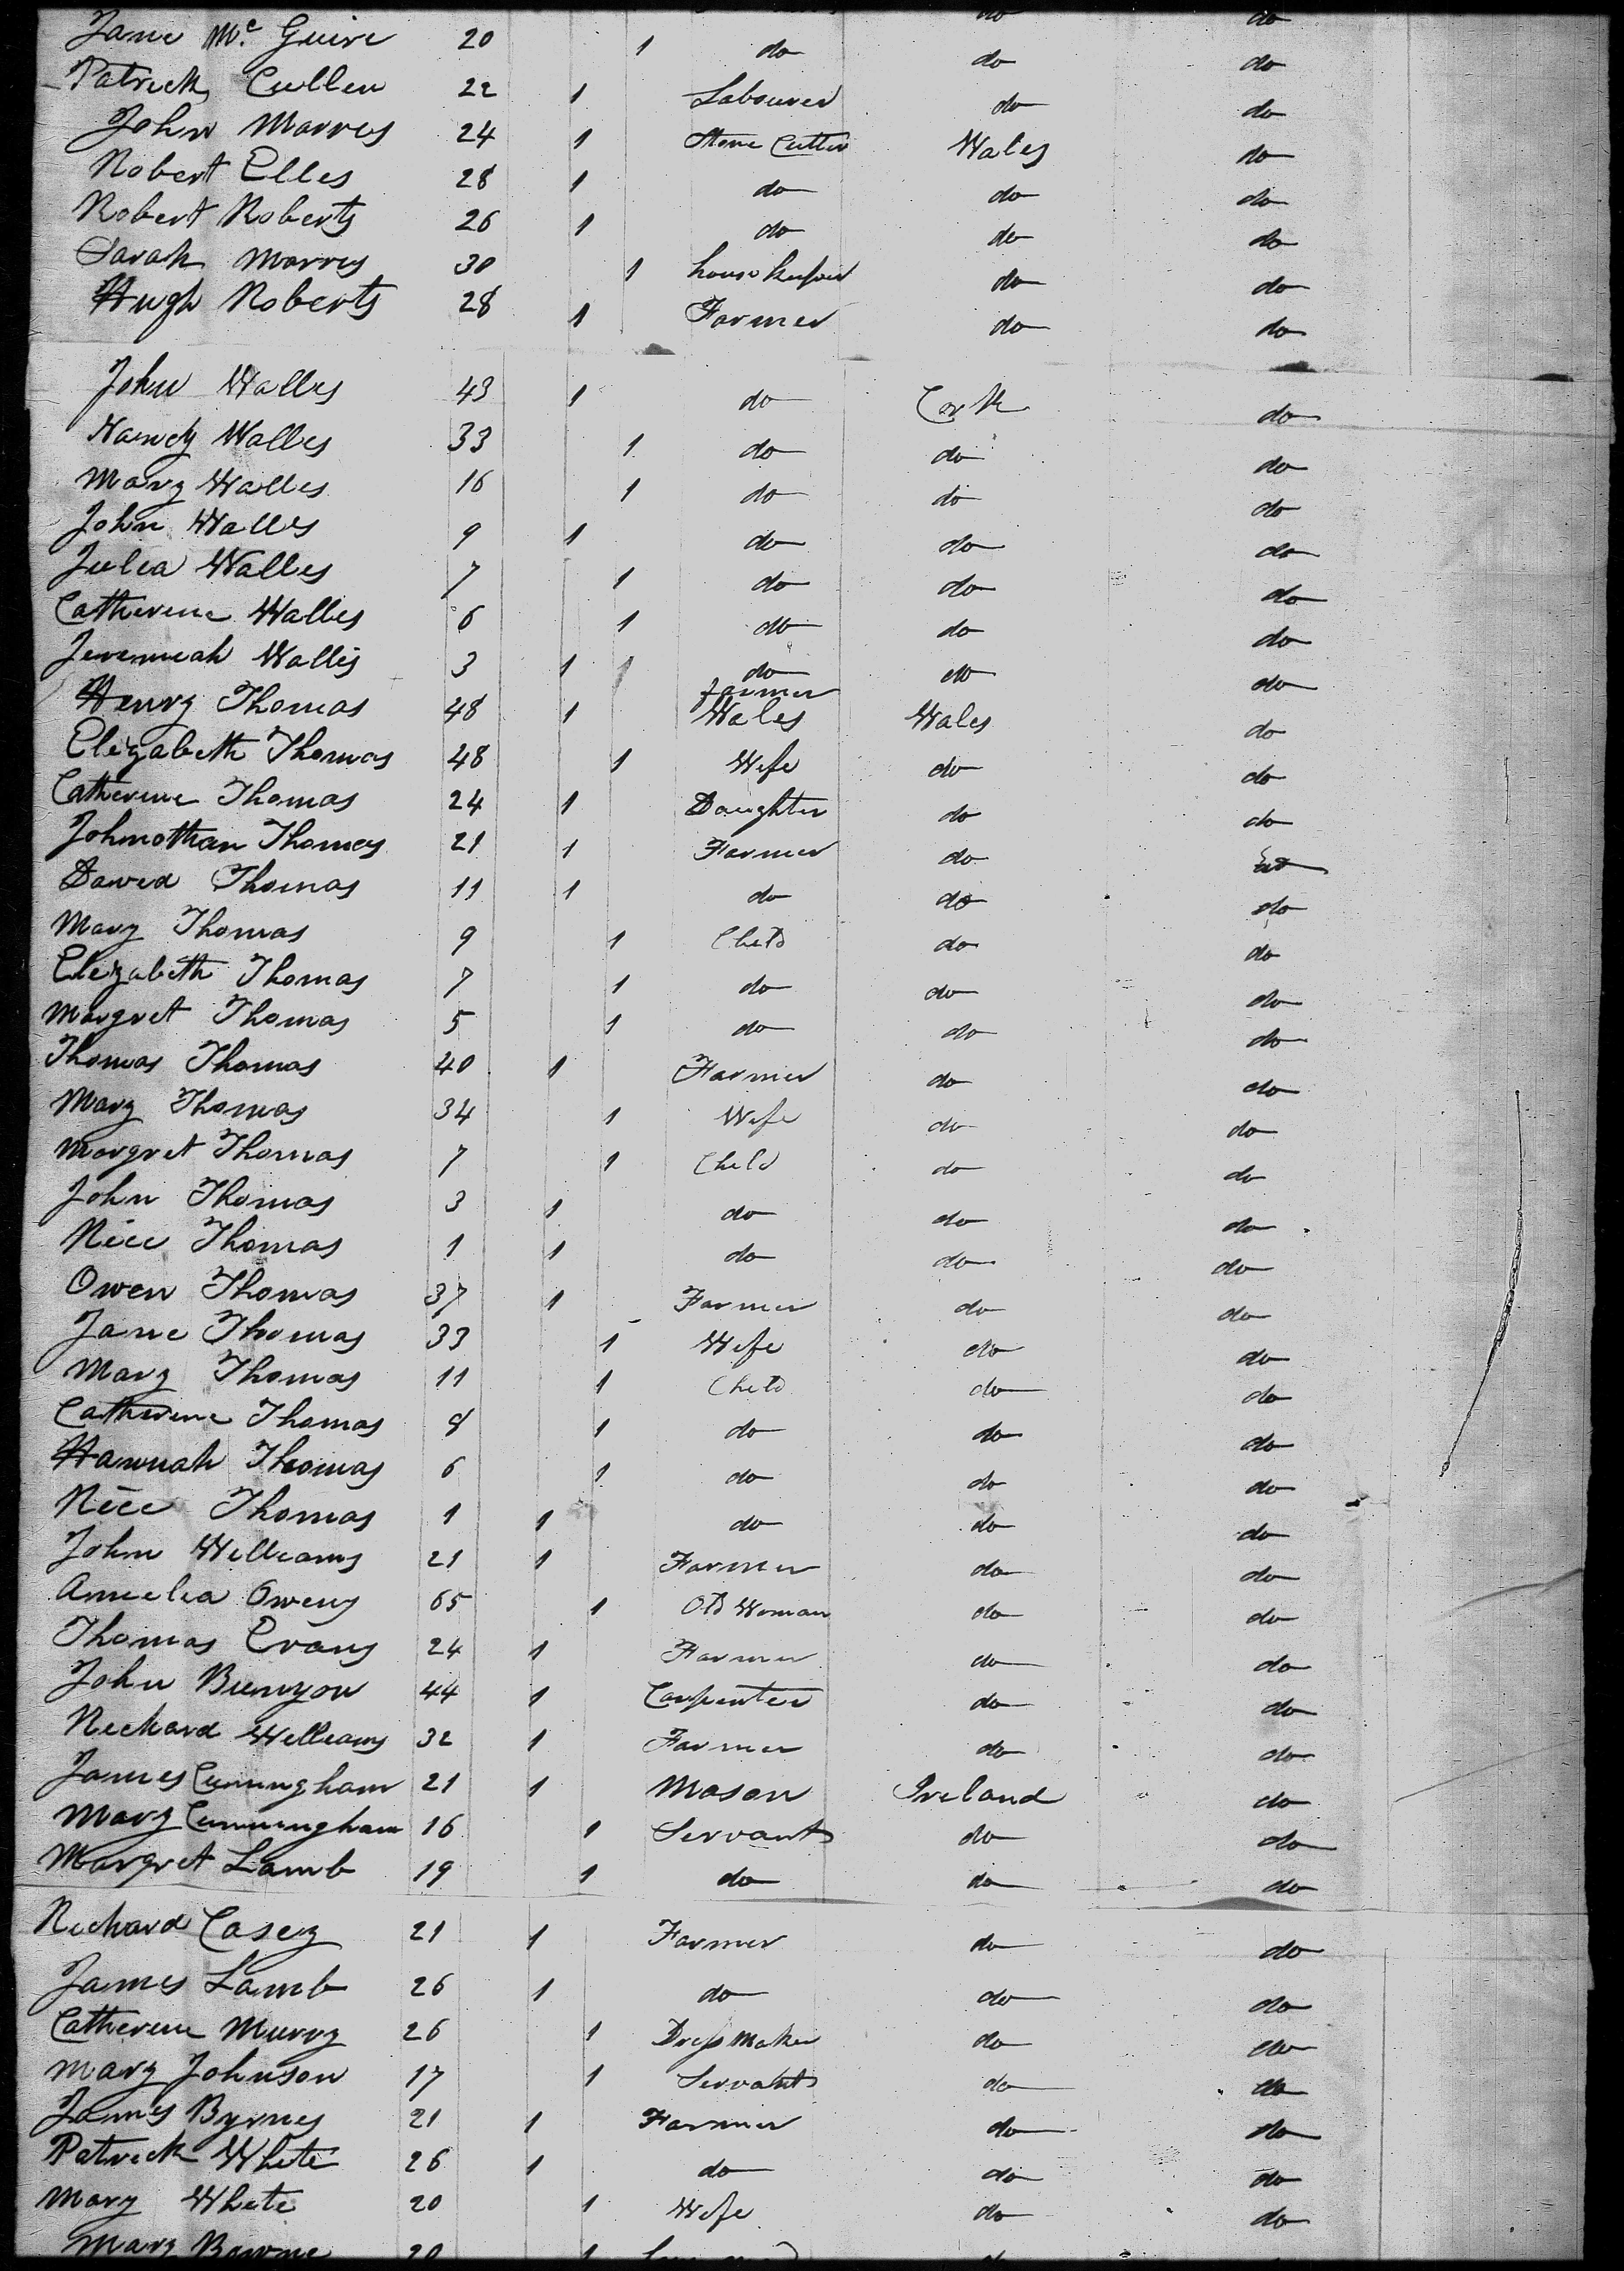 do do
Jane Mc Guire 20 1 do do do
Patrick Cullen 22 1 Labourer do do
John Morres 24 1 Stone Cutter Wales do
Robert Elles 28 1 do do do
Robert Roberts 26 1 do do do
Sarah Morres 30 1 house keeper do do
Hugh Roberts 28 1 Farmer do do
John Walles 43 1 do Cork do
Nancy Walles 33 1 do do do
Mary Walles 16 1 do do do
John Walles 9 1 do do do
Julia Walles 7 1 do do do
Catherine Walles 6 1 do do do
Jeremiah Wallis 3 1 1 do do do
Farmer
Henry Thomas 48 1 Wales Wales do
Elizabeth Thomas 48 1 Wife do do
Catherine Thomas 24 1 Daughter do do
Johnothan Thomas 21 1 Farmer do do
David Thomas 11 1 do do do
Mary Thomas 9 1 Child do do
Elizabeth Thomas 7 1 do do do
Margret Thomas 5 1 do do do
Thomas Thomas 40 1 Farmer do do
Mary Thomas 34 1 Wife do do
Margret Thomas 7 1 Child do do
John Thomas 3 1 do do do
Rice Thomas 1 1 do do do
Owen Thomas 37 1 Farmer do do
Jane Thomas 33 1 Wife do do
Mary Thomas 11 1 Child do do
Catherine Thomas 8 1 do do do
Hannah Thomas 6 1 do do do
Rice Thomas 1 1 do do do
John Williams 21 1 Farmer do do
Amelia Owens 65 1 Old Woman do do
Thomas Evans 24 1 Farmer do do
John Bunyon 44 1 Carpenter do do
Richard Williams 32 1 Farmer do do
James Cunningham 21 1 Mason Ireland do
Mary Cunningham 16 1 Servant do do
Margret Lamb 19 1 do do do
Richard Casey 21 1 Farmer do do
James Lamb 26 1 do do do
Catherine Murry 26 1 Dress Maker do do
Mary Johnson 17 1 Servant do do
James Byrnes 21 1 Farmer do do
Patrick White 26 1 do do do
Mary White 20 1 Wife do do
Mary Bowne 20 1